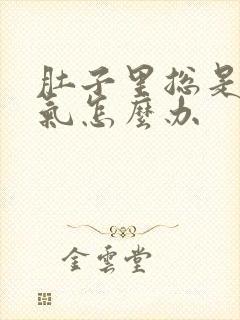 肚子里总是
氣怎麼办
金雲堂